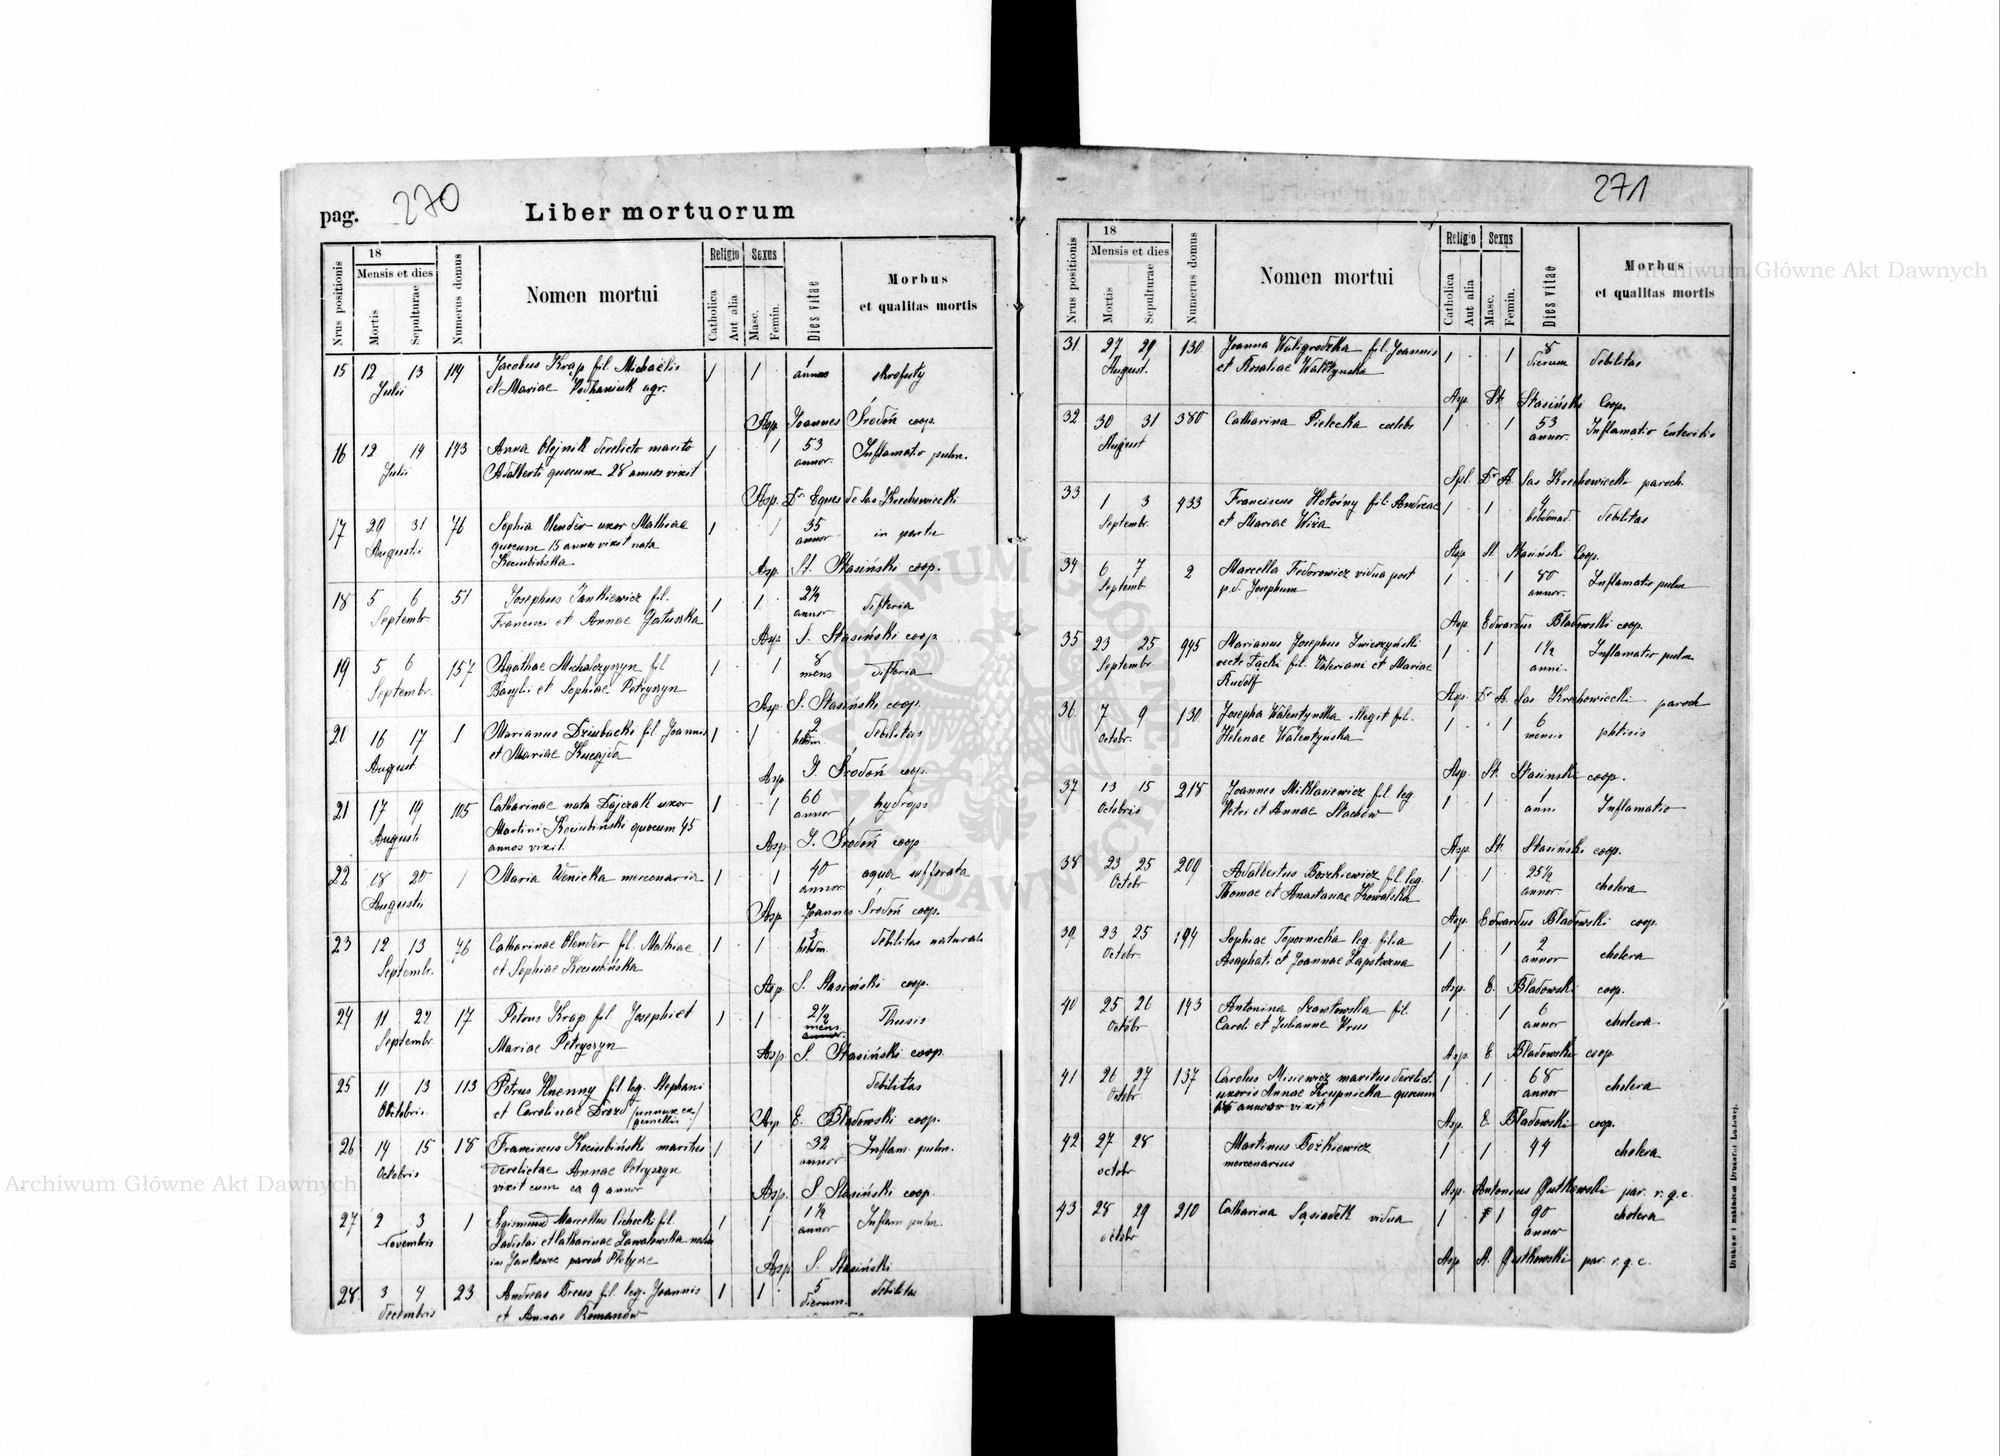 pag. 270 Liber mortuorum
Nrus positionis
18
Mensis et dies
Mortis
Sepulturae
Numerus domus
Nomen mortui
Religio
Catholica
Aut alia
Sexus
Masc.
Femin.
Dies vitae
Morbus
et qualitas mortis
15 12 13 Julii 119 Jacobus Krąp fil. Michaelis 1 1 1 annus skrofuły
et Mariae agr.
Asp. Joannes Środoń coop.
16 12 14 Julii 143 Anna Olejnik derelicto marito 1 1 53 annor. Inflamatio pulm.
Adalberti quocum 28 annos vixit
Asp. Dr Eques de Sas Krechowiecki
17 29 31 Augusti 76 Sophia Olender uxor Mathiae 1 1 35 annor in partu
quocum 15 annos vixit nata
Kociubińska
Asp. St. Stasiński coop.
18 5 6 Septembr. 51 Josephus Jankiewicz fil. 1 1 2½ annor difteria
Francisci et Annae Gałuszka
Asp. S. Stasiński coop.
19 5 6 Septembr. 157 Agathae Michalczyszyn fil 1 1 8 mens difteria
Basylii et Sophiae Petryszyn
Asp. S. Stasiński coop.
21 16 17 August 1 Marianus Dziubacki fil Joannis 1 1 2 hebdm. debilitas
et Mariae Kucajda
Asp J. Środoń coop.
21 17 19 Augusti 105 Catharinae nata Dajczak uxor 1 1 60 annor hydrops
Martini Kociubiński quocum 45
annos vixit.
Asp. J. Środoń coop
22 18 20 Augusti 1 Maria Wenicka mercenaria 1 1 40 annor aqua suffocata
Asp. Joannes Środoń coop.
23 12 13 Septembr. 76 Catharinae Olender fl. Mathiae 1 1 3 hebdm. debilitas naturalis
et Sophiae Kociubińska
Asp S. Stasiński coop.
24 11 22 Septembr 17 Petrus Krąp fil Josephi et 1 1 2½ mens Thusis
Mariae Petryszyn
Asp. S. Stasiński coop
25 11 13 Octobris 113 Petrus fl. leg. Stephani debilitas
et Carolinae Drozd (unnus ex gemellis)
Asp E. Bladowski coop.
26 14 15 Octobris 18 Franciscus Kociubiński maritus 1 1 32 annor Inflam. pulm.
derelictae Annae Petryszyn
vixit cum ea 9 annor
Asp. S. Stasiński coop.
27 2 3 Novembris 1 Sigismund Marcellus Cichocki fil. 1 1 1½ annor Inflam pulm.
Ladislai et Catharinae Lawatowska natus
in Jankowce paroch Płotycze
Asp S. Stasiński
28 3 4 decembris 23 Andreas Breus fl. leg. Joannis 1 1 5 dierum. debilitas
et Annae Romanów
271
Nrus positionis
18
Mensis et dies
Mortis
Sepulturae
Numerus domus
Nomen mortui
Religio
Catholica
Aut alia
Sexus
Masc.
Femin.
Dies vitae
Morbus
et qualitas mortis
31. 27 29 August. 130 Joanna Waligrodzka fil. Joannis 1 1 8 dierum debilitas
et Rosaliae
Asp. St. Stasiński Coop.
32 30 31 August 380 Catharina Pielecka caelebs 1 1 53 annor. Inflamatio enteritis
Spl. Dr A. Sas Krechowiecki paroch.
33 1 3 Septembr. 433 Franciscus fil. Andreae 1 1 4 hebdomad. debilitas
et Mariae Wiża
Asp St Stasiński Coop.
34 6 7 Septemb 2 Marcella Fedorowicz vidua post 1 1 80 annor. Inflamatio pulm
p.d. Josephum
Asp Edwardus Bladowski coop.
35 23 25 Septembr. 945 Marianus Josephus Zwierzyński 1 1 1½ anni. Inflamatio pulm
recte Łącki fil. Valeriani et Mariae
Rudolf
Asp. Dr A. Sas Krechowiecki paroch
36. 7 9 Octobr. 130 Josepha Walentyńska illegit fil. 1 1 6 mensis phtisis
Helenae Walentyńska
Asp. St. Stasinski coop.
37 13 15 Octobris 218 Joannes Miklasiewicz fl. leg 1 1 1 anni. Inflamatio
Petri et Annae Stachów
Asp. St. Stasiński coop.
38 23 25 Octobr 209 Adalbertus Bożkiewicz fl. leg. 1 1 25½ annor cholera
Thomae et Anastasiae Kowalska
Asp. Edwardus Bladowski coop.
39. 23 25 Octobr 194 Sophiae Topornicka leg. filia 1 1 2 annor cholera
Asaphati et Joannae
Asp. E. Bladowski coop.
40 25 26 Octobr 143 Antonina Szawłowska fil. 1 1 6 annor cholera
Caroli et Julianne Krus
Asp. E Bladowski coop
41 26 27 Octobr 137 Carolus Misiewicz maritus derelict. 1 1 68 annor cholera
uxoris Annae Krupnicka quocum
annos vixit
Asp. E Bladowski coop.
42 27 28 octobr Martinus Bożkiewicz 1 1 44 cholera
mercenarius
Asp. Antonius Gutkowski par. r. g. c.
43 28 29 octobr 210 Catharina Sąsiadek vidua 1 1 90 annor cholera
Asp A. Gutkowski par. r. g. c.
Archiwum Główne Akt Dawnych
Archiwum Główne Akt Dawnych
ARCHIWUM GŁÓWNE AKT DAWNYCH